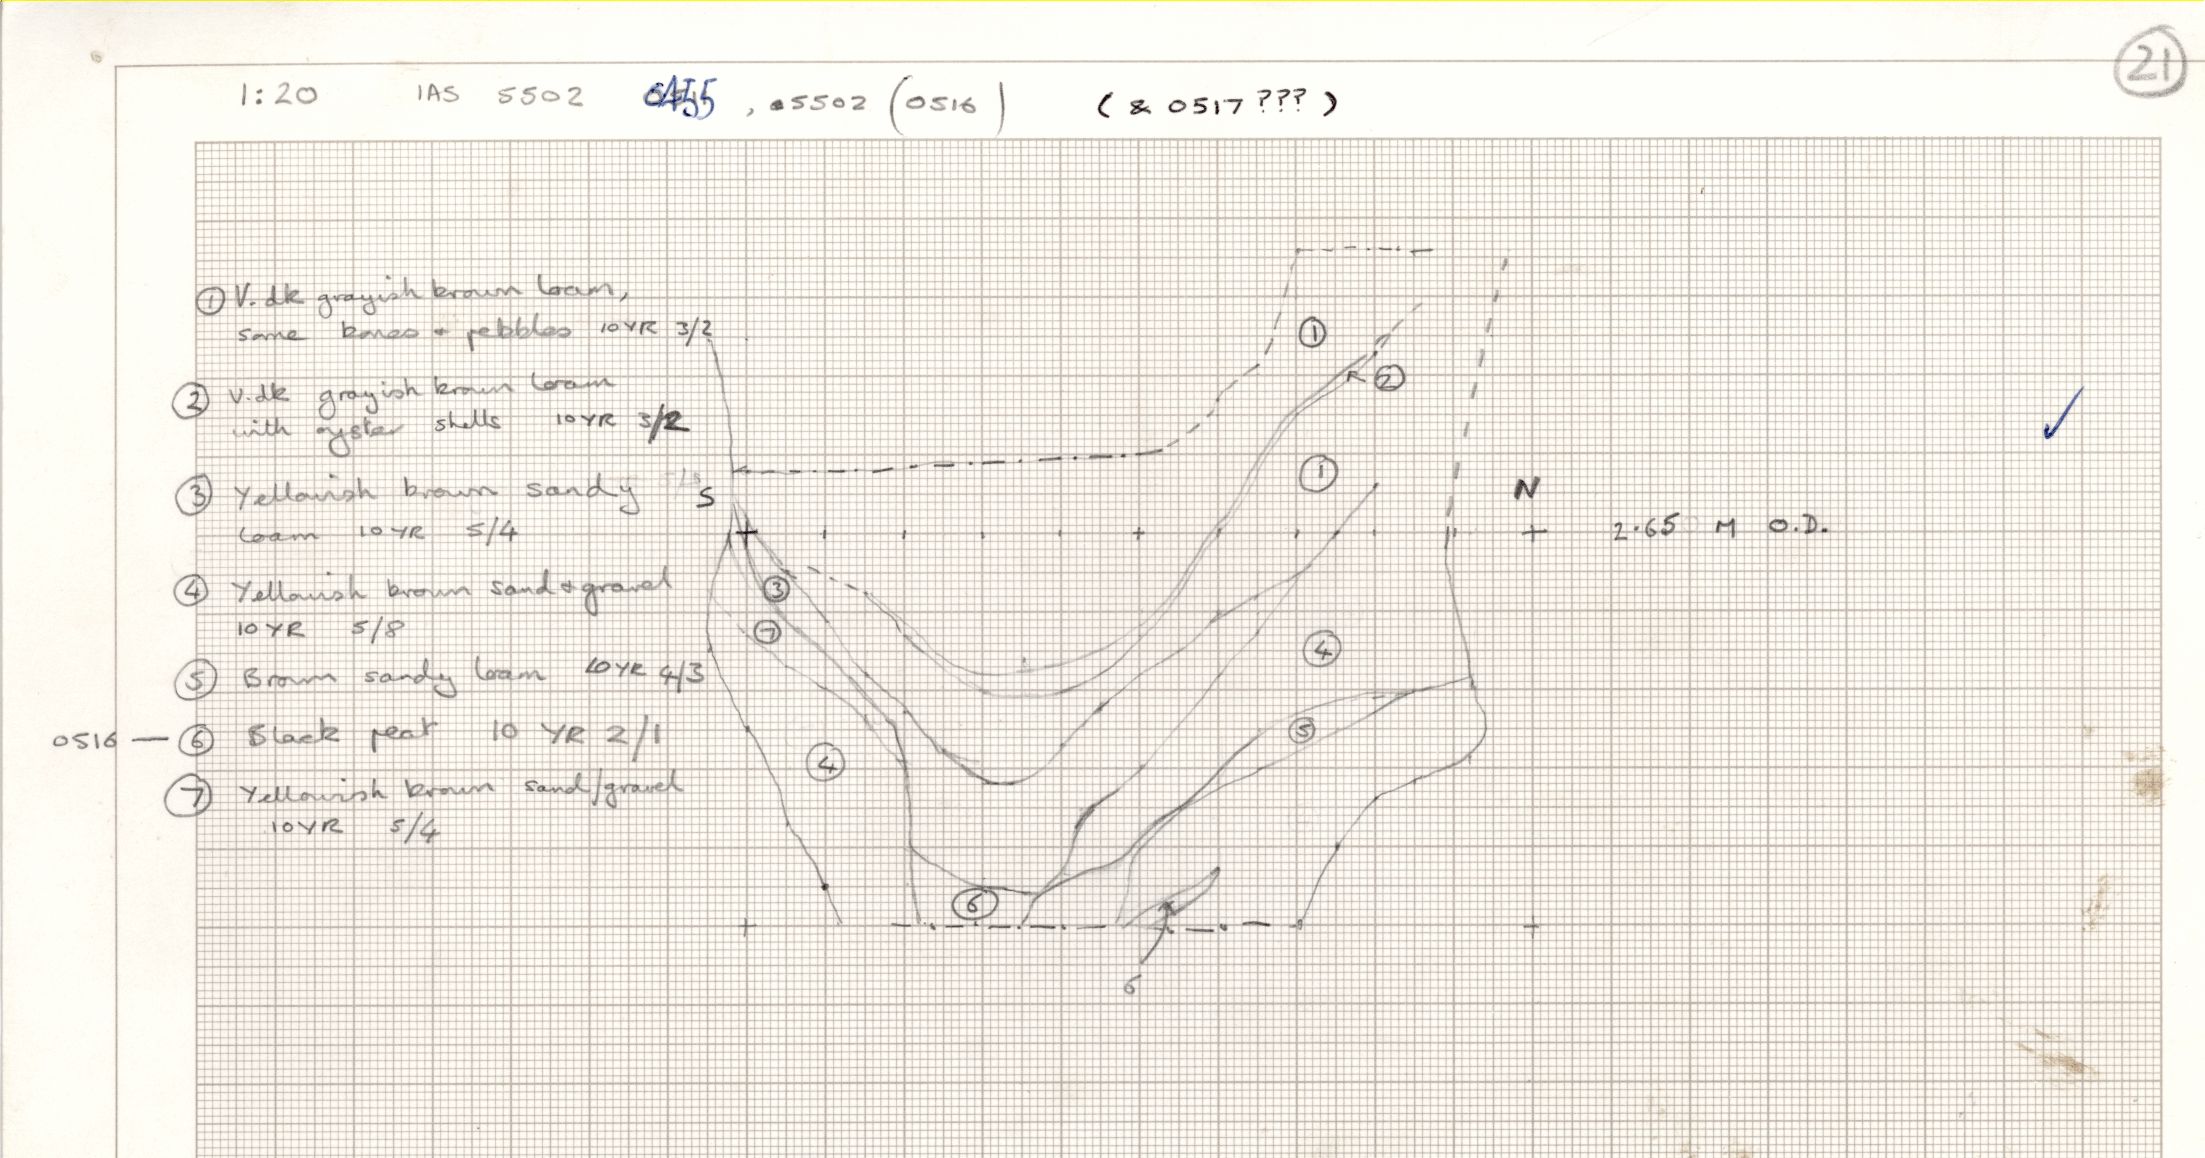 21
1:20 IAS 5502 , 5502 (0516) (& 0517 ???)
① V. dk grayish brown loam,
some bones + pebbles 10YR 3/2
② V. dk grayish brown loam
with oyster shells 10YR 3/2
③ Yellowish brown sandy
loam 10YR 5/4
④ Yellowish brown sand + gravel
10YR 5/8
⑤ Brown sandy loam 10YR 4/3
0516 — ⑥ Black peat 10 YR 2/1
⑦ Yellowish brown sand/gravel
10YR 5/4
①
②
①
S
N
2.65 M O.D.
③
⑦
④
⑤
④
⑥
6